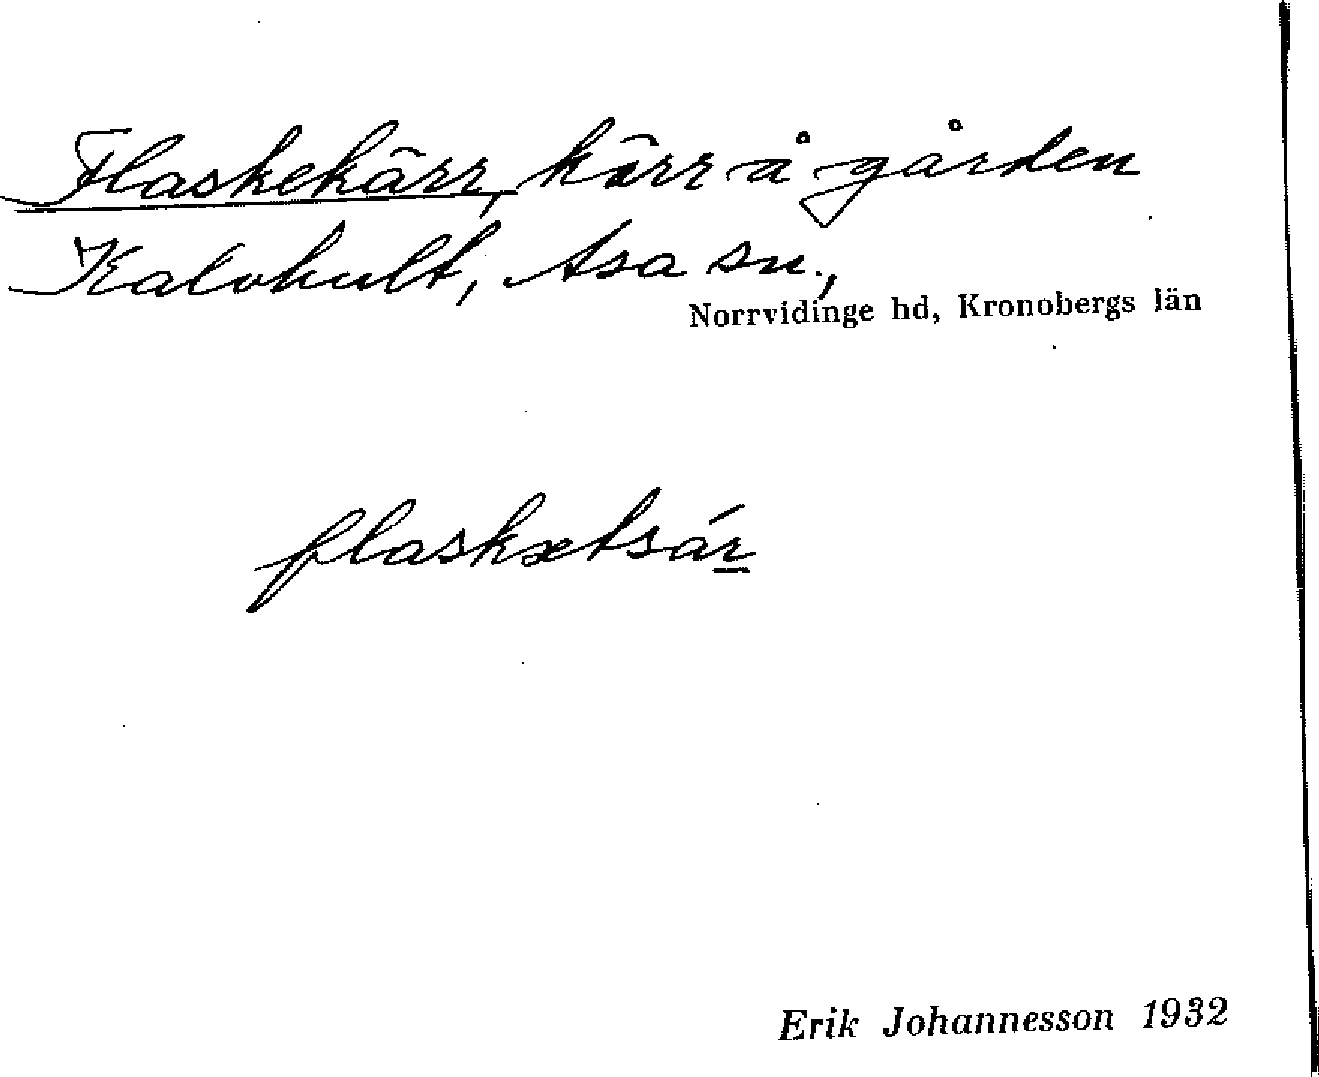 Flaskekärr, kärr å gården
Kalvhult, Asa sn.,
Norrvidinge hd, Kronobergs län
flaskætsár
Erik Johannesson 1932